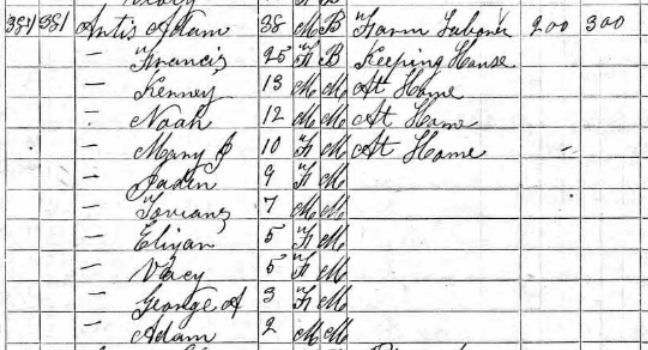 381 381 Antis Adam 38 M B Farm Laborer 200 300
— Francis 25 F B Keeping House
— Kenney 13 M M At Home
— Noah 12 M M At Home
— Mary J 10 F M At Home
— 9 F M
— 7 M M
— Elizan 5 F M
— Vacy 5 F M
— George A 3 F M
— Adam 2 M M